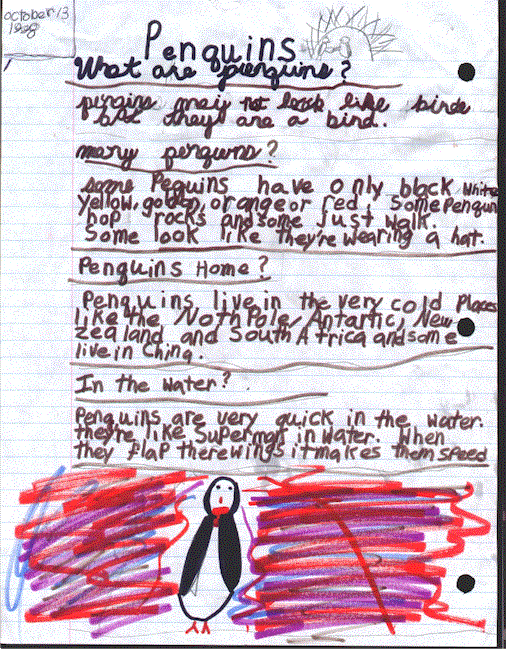 october 13
1998
Penguins
What are penguins?
pingins may not look like birds
but they are a bird.
many penguins?
some Peguins have only black white
yellow, golden, orange or red. Some Penguin
hop rocks and some just walk.
Some look like they're wearing a hat.
Penguins Home?
Penguins live in the very cold Places
like the NothPole, Antartic, New
Zealand and South Africa and some
live in China.
In the water?
Penguins are very quick in the water.
they're like Superman in water. When
they flap there wings it makes them speed